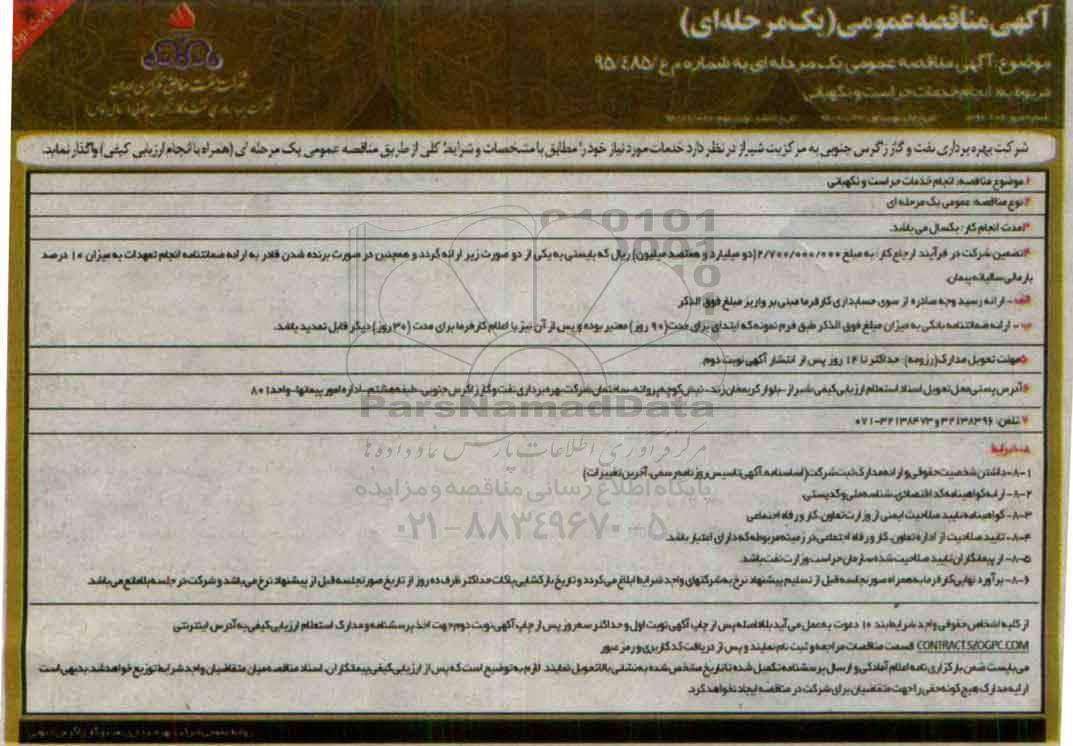 نوبت اول
آگهی مناقصه عمومی (یک مرحله ای)
موضوع: آگهی مناقصه عمومی یک مرحله ای به شماره م ع /۹۵/۴۸۵
مربوط به: انجام خدمات حراست و نگهبانی
شرکت نفت مناطق مرکزی ایران
شرکت بهره برداری نفت و گاز زاگرس جنوبی
شرکت بهره برداری نفت و گاز زاگرس جنوبی به مرکزیت شیراز در نظر دارد خدمات مورد نیاز خود را مطابق با مشخصات و شرایط کلی از طریق مناقصه عمومی یک مرحله ای (همراه با انجام ارزیابی کیفی) واگذار نماید.
۱ موضوع مناقصه: انجام خدمات حراست و نگهبانی
۲ نوع مناقصه: عمومی یک مرحله ای
۳ مدت انجام کار: یکسال می باشد.
۴ تضمین شرکت در فرآیند ارجاع کار: به مبلغ ۲/۷۰۰/۰۰۰/۰۰۰ (دو میلیارد و هفتصد میلیون) ریال که بایستی به یکی از دو صورت زیر ارائه گردد و همچنین در صورت برنده شدن قادر به ارائه ضمانتنامه انجام تعهدات به میزان ۱۰ درصد
بار مالی سالیانه پیمان.
الف - ارائه رسید وجه صادره از سوی حسابداری کارفرما مبنی بر واریز مبلغ فوق الذکر
ب - ارائه ضمانتنامه بانکی به میزان مبلغ فوق الذکر طبق فرم نمونه که ابتدای برای مدت (۹۰ روز) معتبر بوده و پس از آن نیز با اعلام کارفرما برای مدت (۳۰ روز) دیگر قابل تمدید باشد.
۵ مهلت تحویل مدارک (رزومه): حداکثر تا ۱۴ روز پس از انتشار آگهی نوبت دوم.
۶ آدرس پستی محل تحویل اسناد استعلام ارزیابی کیفی: شیراز - بلوار کریمخان زند - نبش کوچه پروانه - ساختمان شرکت بهره برداری نفت و گاز زاگرس جنوبی - طبقه هشتم - اداره امور پیمانها - واحد ۸۰۱
۷ تلفن: ۳۲۱۳۸۳۹۶ و ۳۲۱۳۸۴۷۳-۰۷۱
۸-شرایط
۸-۱- داشتن شخصیت حقوقی و ارائه مدارک ثبت شرکت (اساسنامه، آگهی تاسیس روزنامه رسمی، آخرین تغییرات)
۸-۲- ارائه گواهینامه کد اقتصادی، شناسه ملی و کد پستی.
۸-۳- گواهینامه تایید صلاحیت ایمنی از وزارت تعاون، کار و رفاه اجتماعی
۸-۴- تایید صلاحیت از اداره تعاون، کار و رفاه اجتماعی در زمینه مربوطه که دارای اعتبار باشد.
۸-۵- از پیمانکاران تایید صلاحیت شده سازمان حراست وزارت نفت باشد.
۸-۶- برآورد نهایی کارفرما به همراه صورتجلسه قبل از تسلیم پیشنهاد نرخ به شرکتهای واجد شرایط ابلاغ می گردد و تاریخ بازگشایی پاکات حداکثر ظرف ده روز از تاریخ صورتجلسه قبل از پیشنهاد نرخ می باشد و شرکت در جلسه بلامانع می باشد.
از کلیه اشخاص حقوقی واجد شرایط بند ۱۰ دعوت به عمل می آید بلافاصله پس از چاپ آگهی نوبت اول و حداکثر سه روز پس از چاپ آگهی نوبت دوم جهت اخذ پرسشنامه و مدارک استعلام ارزیابی کیفی به آدرس اینترنتی
CONTRACT.SZOGPC.COM قسمت مناقصات مراجعه و ثبت نام نمایند و پس از دریافت کد کاربری و رمز عبور
می بایست ضمن بارگزاری نامه اعلام آمادگی و ارسال پرسشنامه تکمیل شده تا تاریخ مشخص شده به نشانی بالا تحویل نمایند. لازم به توضیح است که پس از ارزیابی کیفی پیمانکاران، اسناد مناقصه میان متقاضیان واجد شرایط توزیع خواهد شد. بدیهی است
ارایه مدارک هیچگونه حقی را جهت متقاضیان برای شرکت در مناقصه ایجاد نخواهد کرد.
روابط عمومی شرکت بهره برداری نفت و گاز زاگرس جنوبی
ParsNamadData
مرکز فرآوری اطلاعات پارس نماد داده ها
پایگاه اطلاع رسانی مناقصه و مزایده
۰۲۱-۸۸۳۴۹۶۷۰-۵